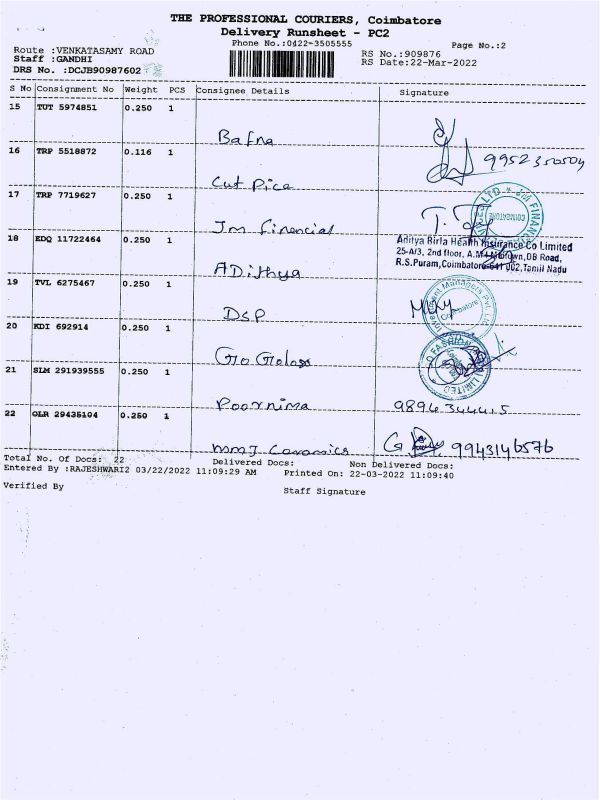 THE PROFESSIONAL COURIERS, Coimbatore
Delivery Runsheet - PC2
Phone No.:0422-3505555
Page No.:2
Route :VENKATASAMY ROAD
RS No.:909876
Staff :GANDHI
RS Date:22-Mar-2022
DRS No. :DCJB90987602
S No Consignment No Weight PCS Consignee Details Signature
15 TUT 5974851 0.250 1
Bafna
16 TRP 5518872 0.116 1
9952350504
Cut Pice
17 TRP 7719627 0.250 1
Jm financial
18 EDQ 11722464 0.250 1
Aditya Birla Health Insurance Co Limited
25-A/3, 2nd floor, A.M.I Midtown,DB Road,
R.S.Puram,Coimbatore-641 002,Tamil Nadu
ADithya
19 TVL 6275467 0.250 1
DSP
20 KDI 692914 0.250 1
21 SLM 291939555 0.250 1
Poornima
9894344415
22 OLR 29435104 0.250 1
MMJ Ceramics
9943146576
Total No. Of Docs: 22 Delivered Docs: Non Delivered Docs:
Entered By :RAJESHWARI2 03/22/2022 11:09:29 AM Printed On: 22-03-2022 11:09:40
Verified By
Staff Signature